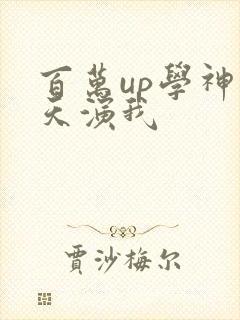 百萬up學神
天演我
賈沙梅尔